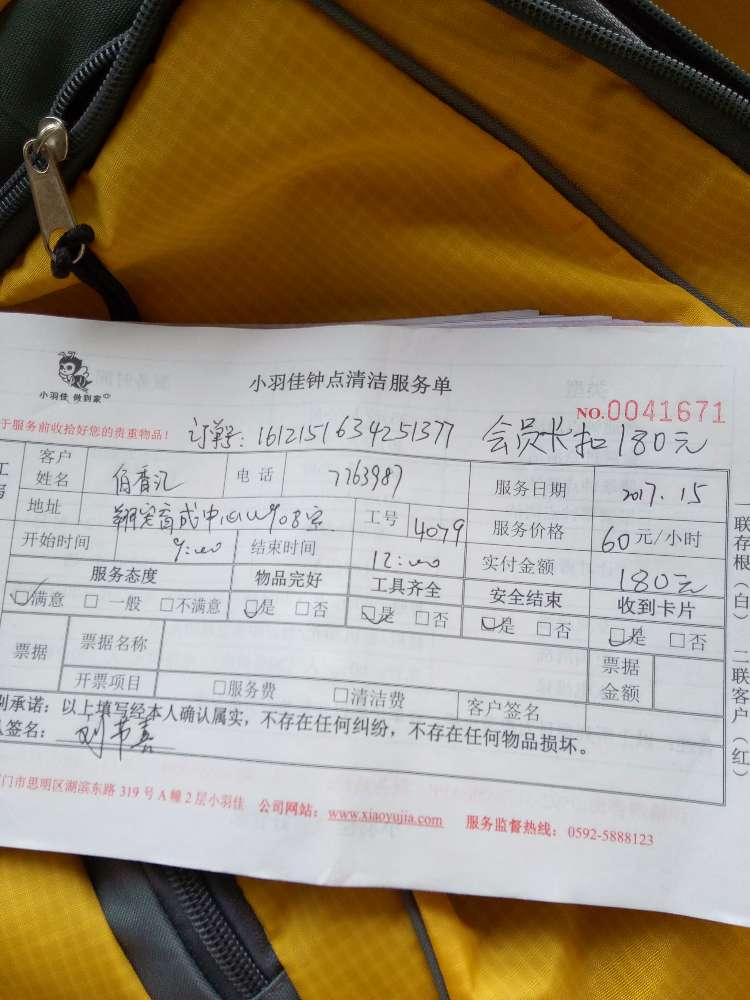 小羽佳 做到家
小羽佳钟点清洁服务单
NO.0041671
于服务前收拾好您的贵重物品！ 订单号：1612151634251377 会员卡扣180元
客户姓名 电话 7763987 服务日期 2017.15
地址 工号 4079 服务价格 60元/小时
开始时间 9:00 结束时间 12:00 实付金额 180元
服务态度 物品完好 工具齐全 安全结束 收到卡片
☑满意 □一般 □不满意 ☑是 □否 ☑是 □否 ☑是 □否 ☑是 □否
票据 票据名称 票据金额
开票项目 □服务费 □清洁费 客户签名
承诺：以上填写经本人确认属实，不存在任何纠纷，不存在任何物品损坏。
签名：
门市思明区湖滨东路319号A幢2层小羽佳 公司网站：www.xiaoyujia.com 服务监督热线：0592-5888123
一联存根（白） 二联客户（红）